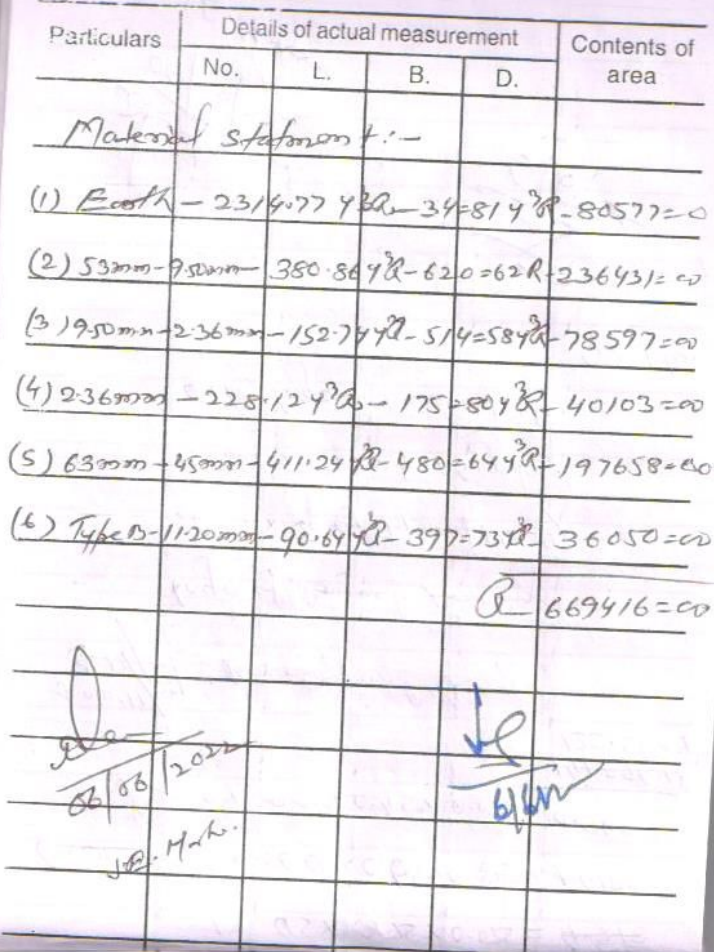 Particulars Details of actual measurement Contents of area
No. L. B. D.
Material statment :-
(1) Earth - 2314.77 y³ @ - 34=81 y³ @ - 80577=00
(2) 53mm - 9.50mm - 380.86 y³ @ - 620=62 @ - 236431=00
(3) 9.50mm - 2.36mm - 152.74 y³ @ - 514=58 y³ @ - 78597=00
(4) 2.36mm - 228.12 y³ @ - 175=80 y³ @ - 40103=00
(5) 63mm - 45mm - 411.24 y³ @ - 480=64 y³ @ - 197658=00
(6) Type B - 11.20mm - 90.64 y³ @ - 397=73 y³ @ - 36050=00
669416=00
06/06/2022
6/6/22